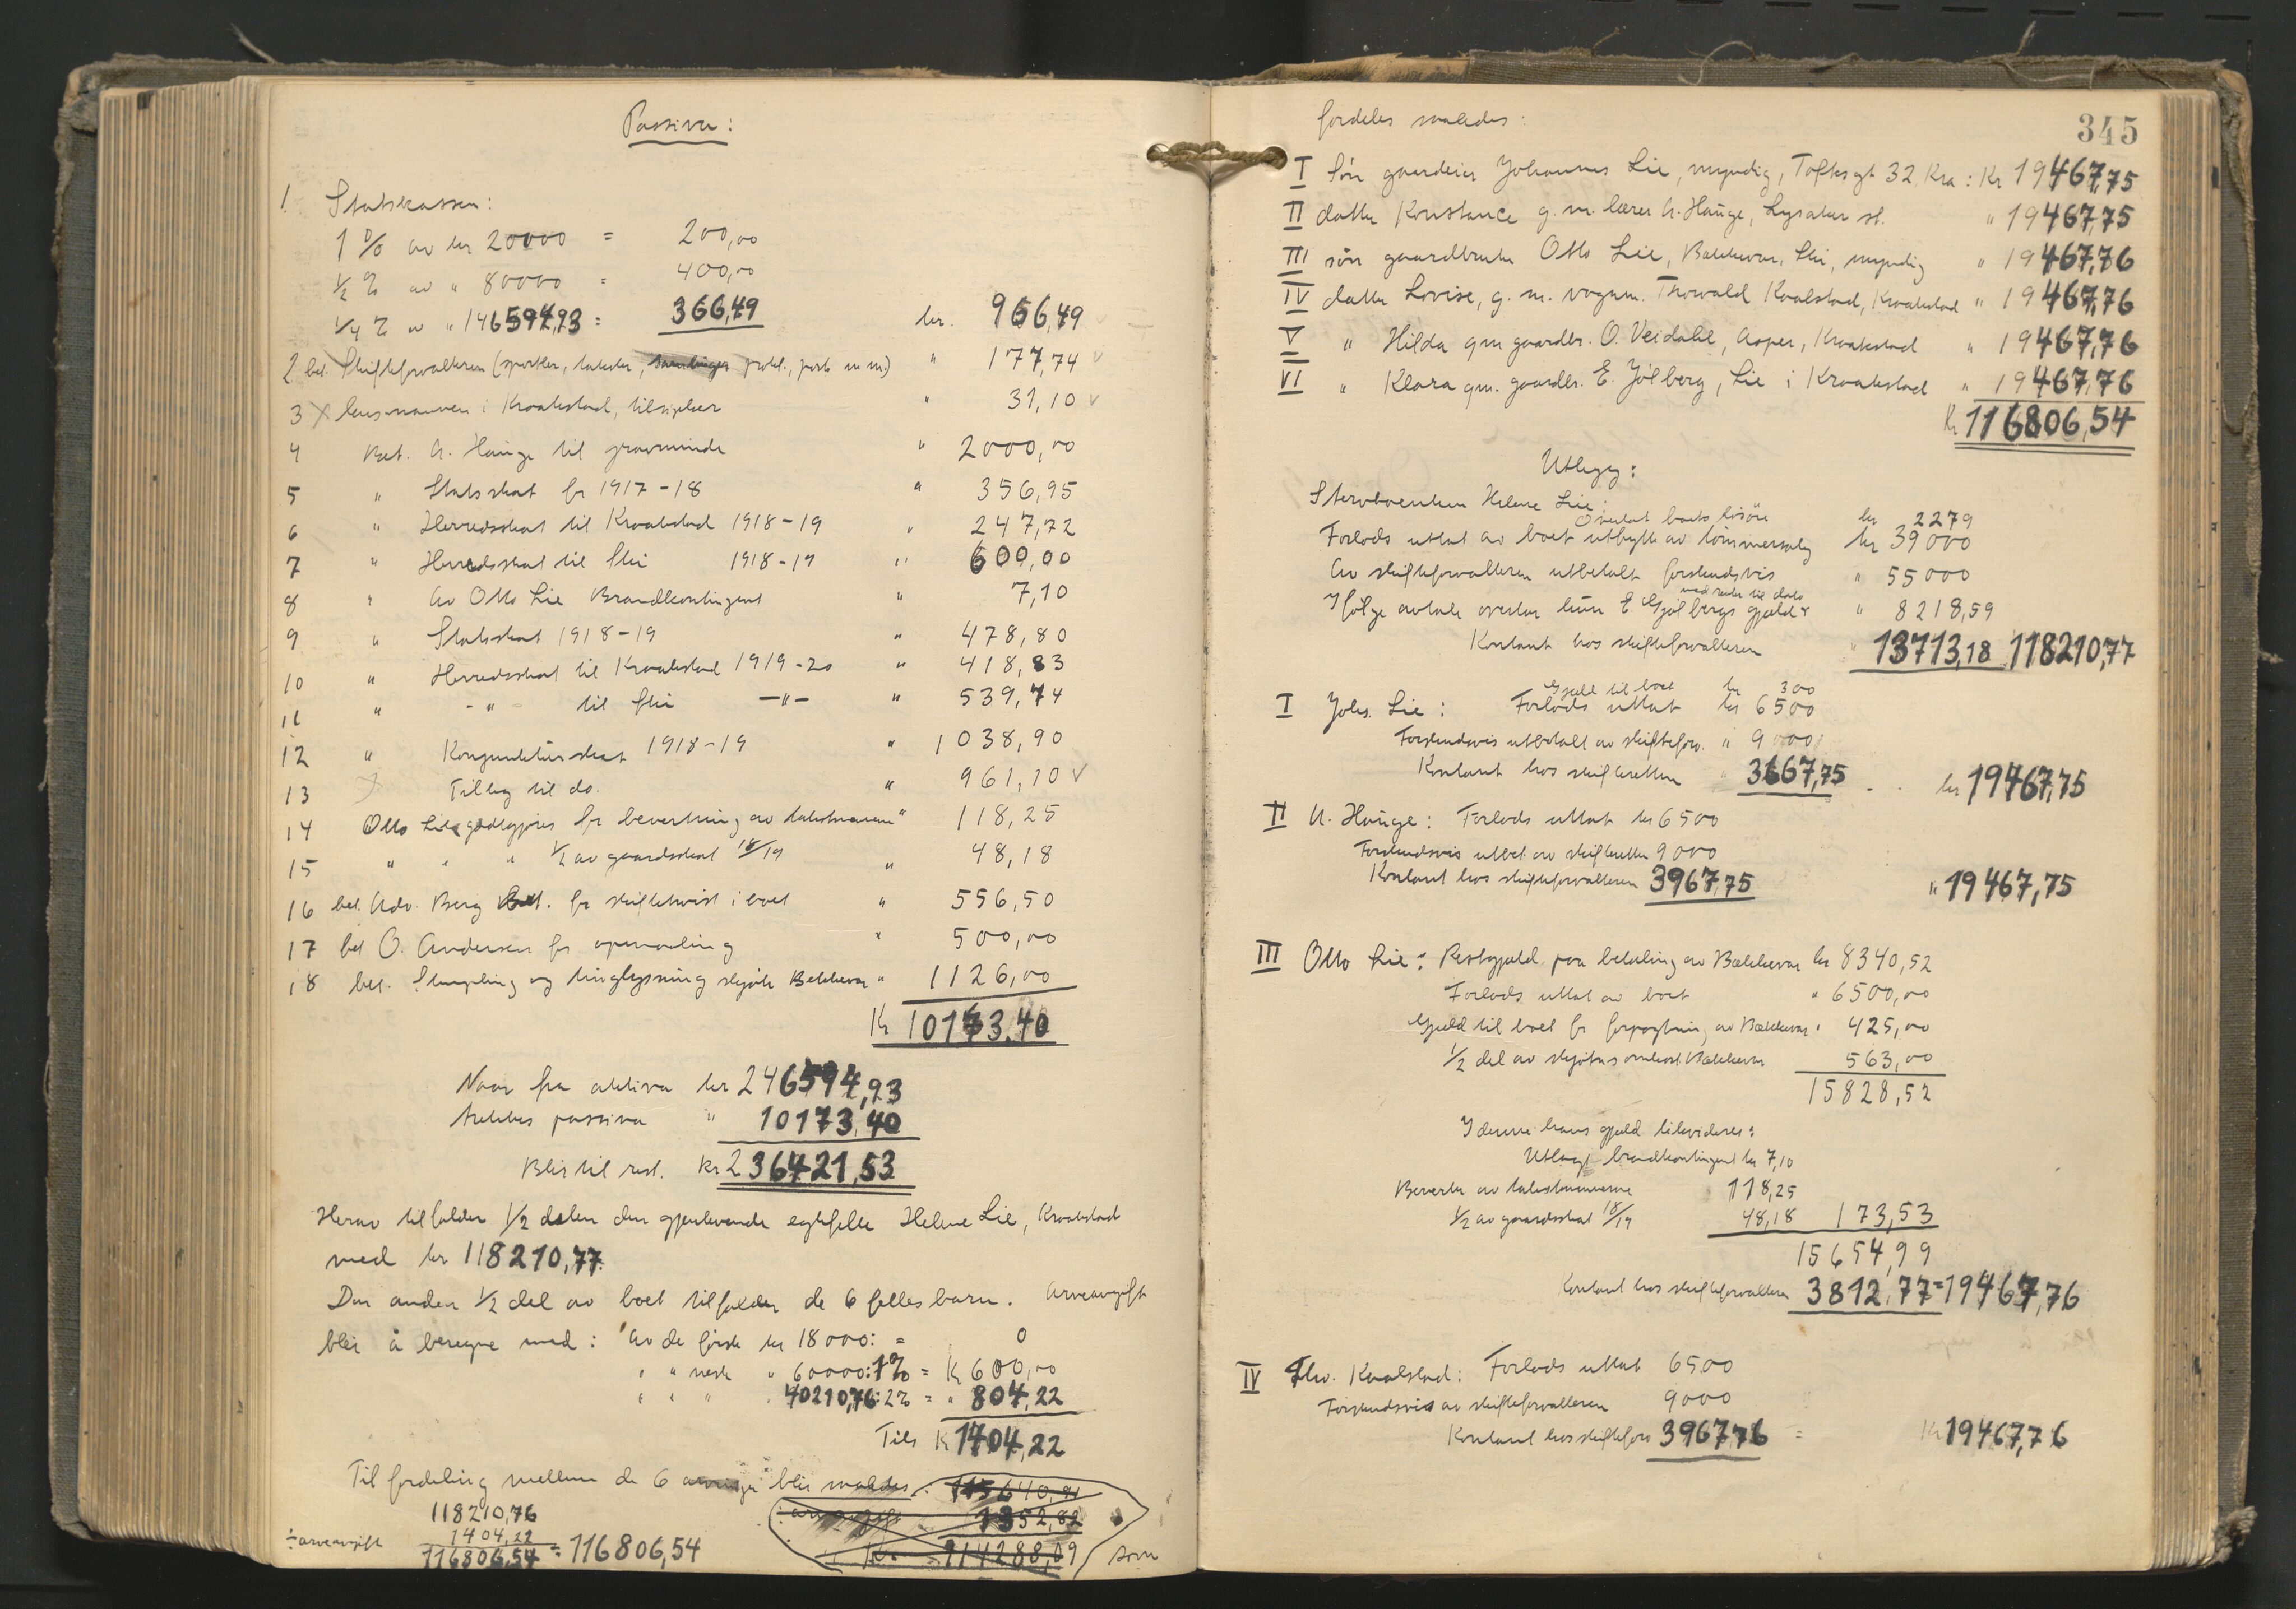 Passiva:
1 Statskassen:
1 % av kr 20000 = 200,00
½ % av " 80000 = 400,00
¼ % av " 146594,93 = 366,49 kr. 966,49
2 bet. Skifteforvalteren (sportler, takster, protok., porto m m) " 177,74
3 lensmannen i Kraakstad, tilsigelser " 31,10
4 Bet. A. Hauge til gravminde " 2000,00
5 " Statsskat for 1917-18 " 356,95
6 " Herredsskat til Kraakstad 1918-19 " 247,72
7 " Herredsskat til Ski 1918-19 " 600,00
8 " Av Otto Lie Brandkontingent " 7,10
9 " Statsskat 1918-19 " 478,80
10 " Herredsskat til Kraakstad 1919-20 " 418,83
11 " - " - til Ski -"- " 539,74
12 " Konjunkturskat 1918-19 " 1038,90
13 Tillæg til do. " 961,10
14 Otto Lie godtgjøres for bevertning av takstmænnene " 118,25
15 " " " ½ av gaardsskat 18/19 " 48,18
16 bet. Adv. Berg for skiftetvist i boet " 556,50
17 bet O. Andersen for opmaaling " 500,00
18 bet. Stempling og tinglysning skjøte Bækkevar " 1126,00
Kr 10173,40
Naar fra aktiva kr 246594,93
trækkes passiva " 10173,40
Blir til rest. Kr 236421,53
Herav tilfalder ½ delen den gjenlevende egtefelle Helene Lie, Kraakstad
med kr 118210,77.
Den anden ½ del av boet tilfalder de 6 felles barn. Arveavgift
blir å beregne med: Av de første kr 18000: = 0
" " neste " 60000: 1% = Kr 600,00
" " " " 40210,76: 2% = " 804,22
Tils Kr 1404,22
Til fordeling mellem de 6 arvinger blir saaledes 115640,91
118210,76 ÷ arveavgift 1352,82
÷ arveavgift 1404,22
116806,54 = 116806,54 Kr. 114288,09 som
345
fordeles saaledes:
I Søn gaardeier Johannes Lie, myndig, Toftesgt 32, Kra: Kr 19467,75
II datter Konstance g. m. lærer A. Hauge, Lysaker st. " 19467,75
III søn gaardbruker Otto Lie, Bækkevar, Ski, myndig " 19467,76
IV datter Lovise, g. m. vognm. Thorvald Kaalstad, Kraakstad " 19467,76
V " Hilda gm gaardbr. O. Veidahl, Asper, Kraakstad " 19467,76
VI " Klara gm. gaardbr. E. Gjølberg, Lie i Kraakstad " 19467,76
Kr 116806,54
Utlegg:
Stervboenken Helene Lie:
Overtat boets løsøre kr 2279
Forlods uttat av boet utbytte av tømmersalg kr 39000
Av skifteforvalteren utbetalt forskudsvis " 55000
Ifølge avtale overtar hun E. Gjølbergs gjæld med renter til dato " 8218,59
Kontant hos skifteforvalteren " 13713,18 118210,77
I Johs. Lie: Gjæld til boet kr 300
Forlods uttat kr 6500
Forskudsvis utbetalt av skifteforv. " 9000
Kontant hos skifteretten " 3667,75 . . kr 19467,75
II A. Hauge: Forlods uttat kr 6500
Forskudsvis utbet. av skifteretten 9000
Kontant hos skifteforvalteren 3967,75 " 19467,75
III Otto Lie: Restgjæld paa betaling av Bækkevar kr 8340,52
Forlods uttat av boet " 6500,00
Gjæld til boet for forpagtning av Bækkevar " 425,00
½ del av skjøtnsomkost Bækkevar 563,00
15828,52
I denne hans gjæld likvideres:
Utlagt brandkontingent kr 7,10
Bevertn av takstmennerne 118,25
½ av gaardsskat 18/19 48,18 173,53
15654,99
Kontant hos skifteforvalteren 3812,77 = 19467,76
IV Thv. Kaalstad: Forlods uttat 6500
Forskudsvis av skifteforvalteren 9000
Kontant hos skifteforv 3967,76 = Kr 19467,76